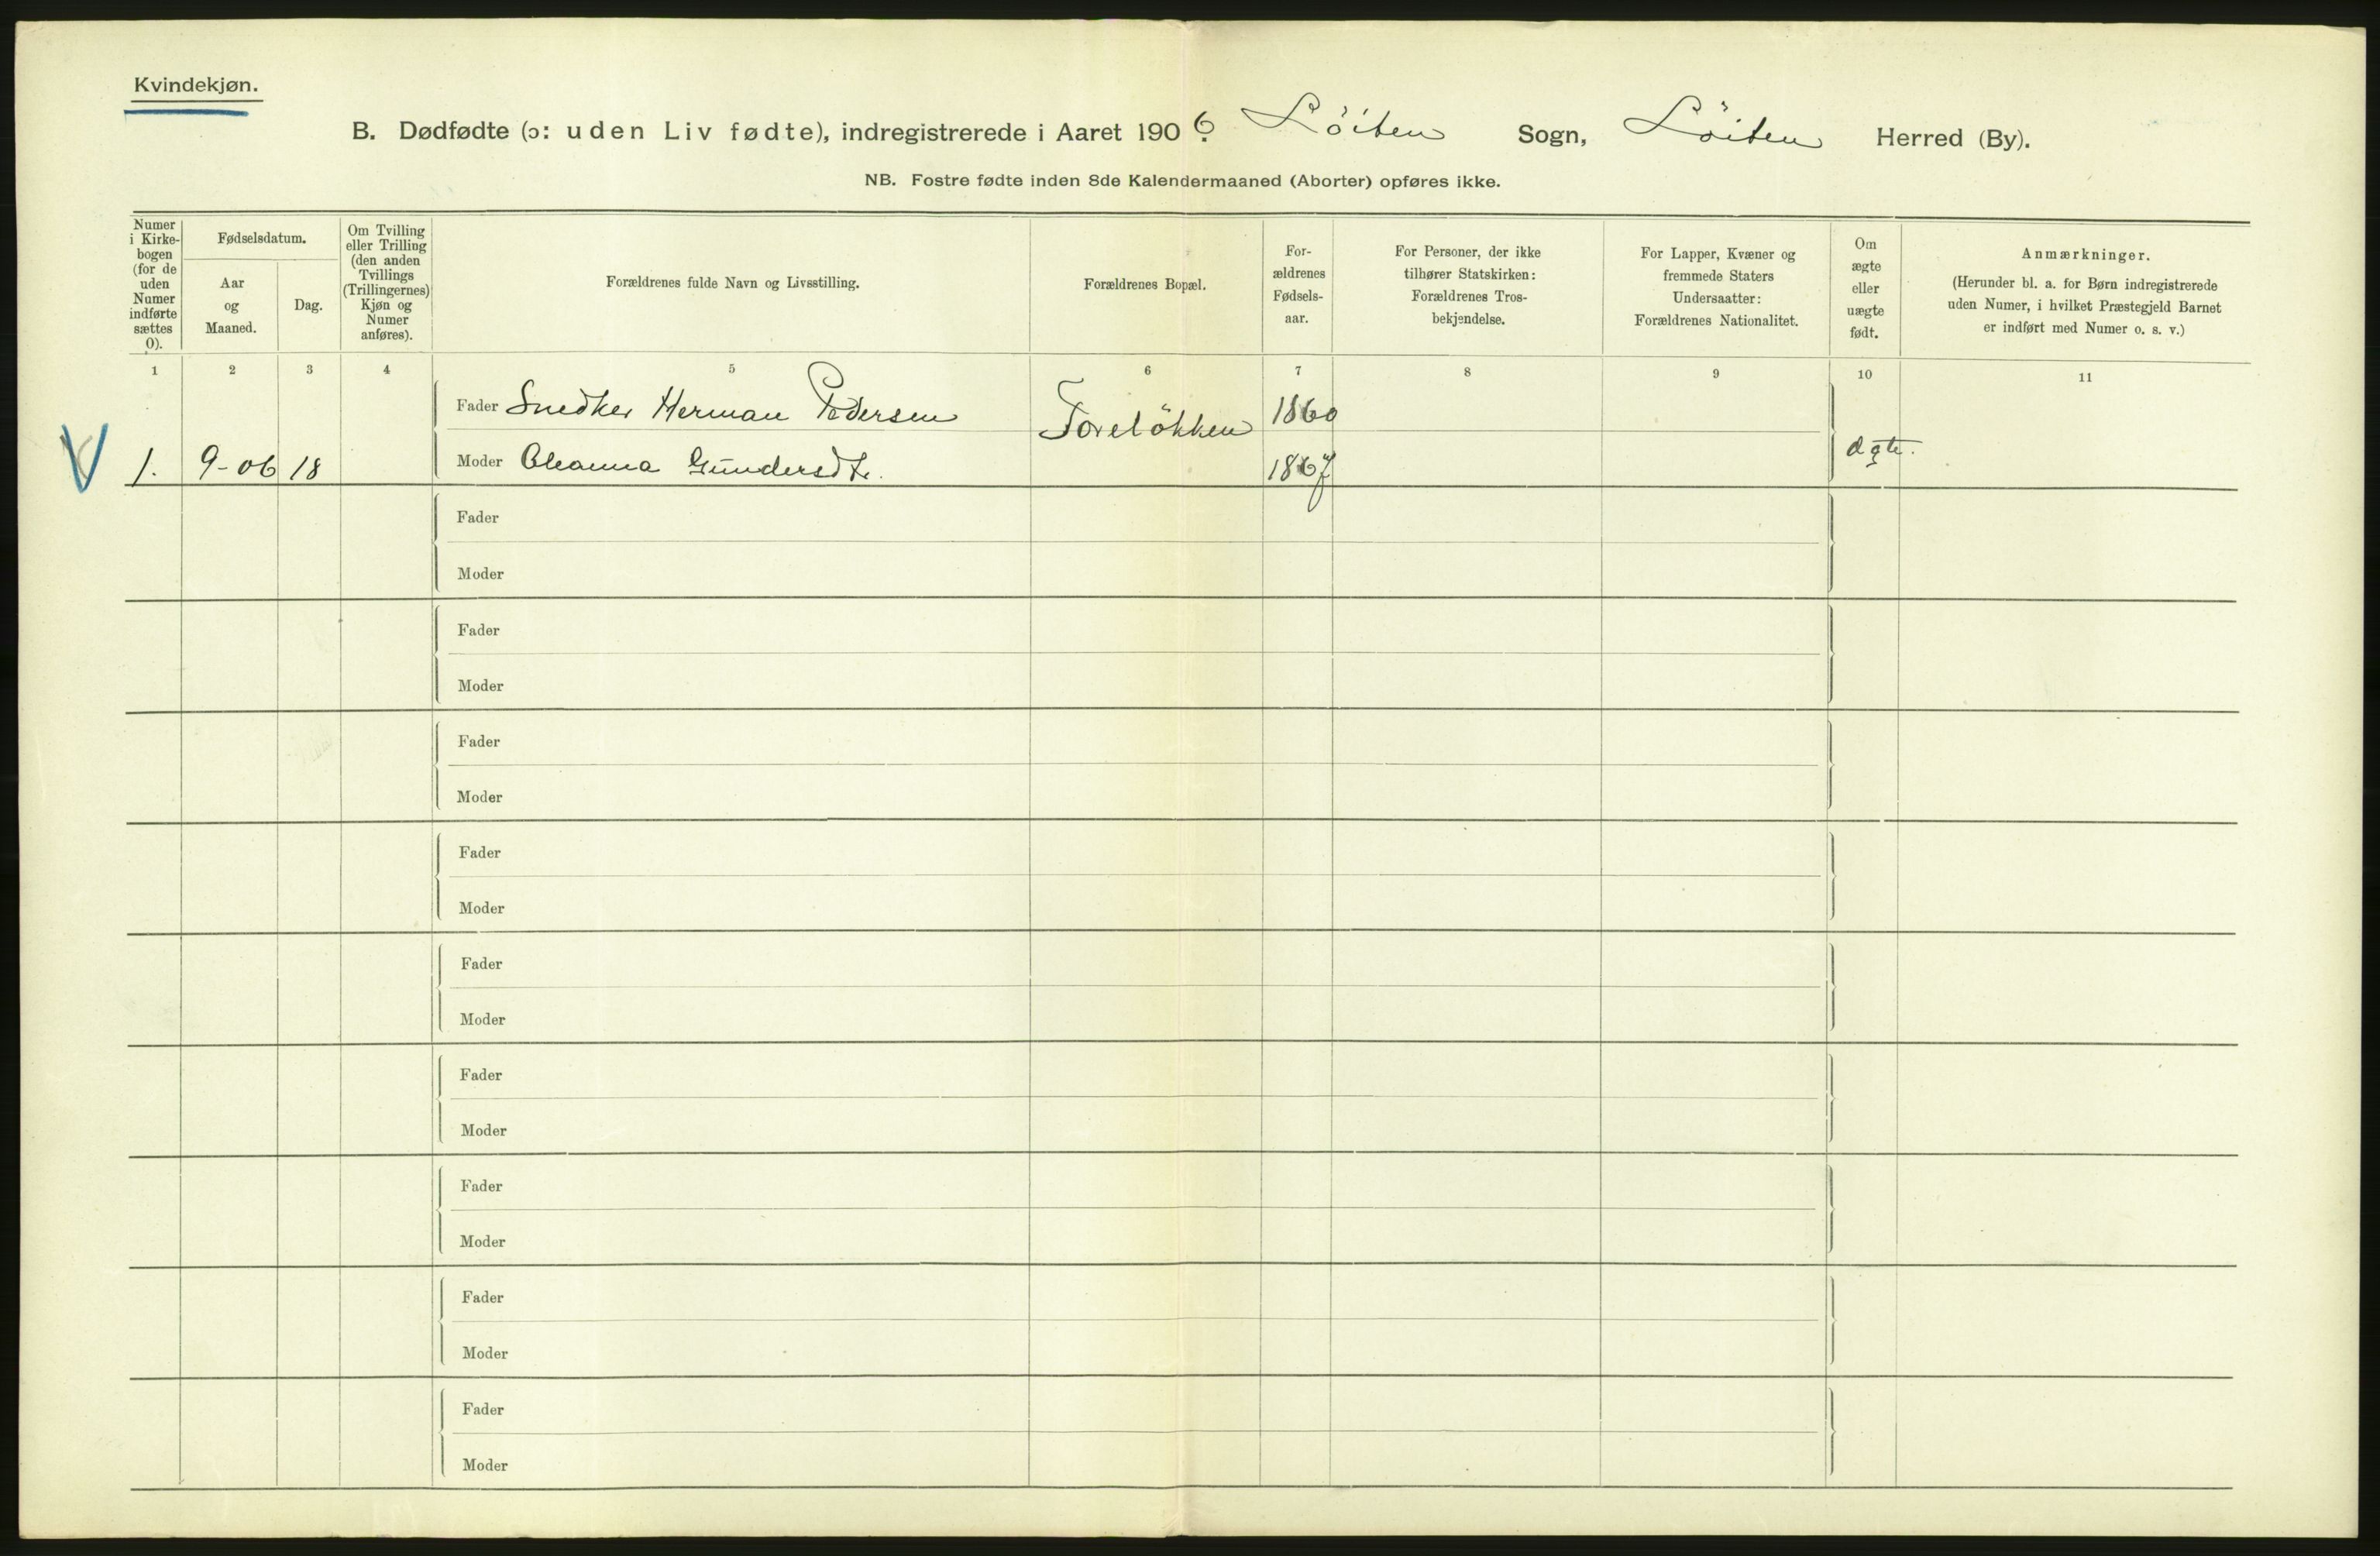 Kvindekjøn.
B. Dødfødte (ɔ: uden Liv fødte), indregistrerede i Aaret 1906. Löiten Sogn, Löiten Herred (By).
NB. Fostre fødte inden 8de Kalendermaaned (Aborter) opføres ikke.
Numer
i Kirke-
bogen
(for de
uden
Numer
indførte
sættes
0).
Fødselsdatum.
Aar
og
Maaned.
Dag.
Om Tvilling
eller Trilling
(den anden
Tvillings
(Trillingernes)
Kjøn og
Numer
anføres).
Forældrenes fulde Navn og Livsstilling.
Forældrenes Bopæl.
For-
ældrenes
Fødsels-
aar.
For Personer, der ikke
tilhører Statskirken:
Forældrenes Tros-
bekjendelse.
For Lapper, Kvæner og
fremmede Staters
Undersaatter:
Forældrenes Nationalitet.
Om
ægte
eller
uægte
født.
Anmærkninger.
(Herunder bl. a. for Børn indregistrerede
uden Numer, i hvilket Præstegjeld Barnet
er indført med Numer o. s. v.)
1 2 3 4 5 6 7 8 9 10 11
Fader Snedker Herman Pedersen Toreløkken 1860
1. 9-06 18 Moder Oleanna Gundersdtr. 1867 ægte.
Fader
Moder
Fader
Moder
Fader
Moder
Fader
Moder
Fader
Moder
Fader
Moder
Fader
Moder
Fader
Moder
Fader
Moder